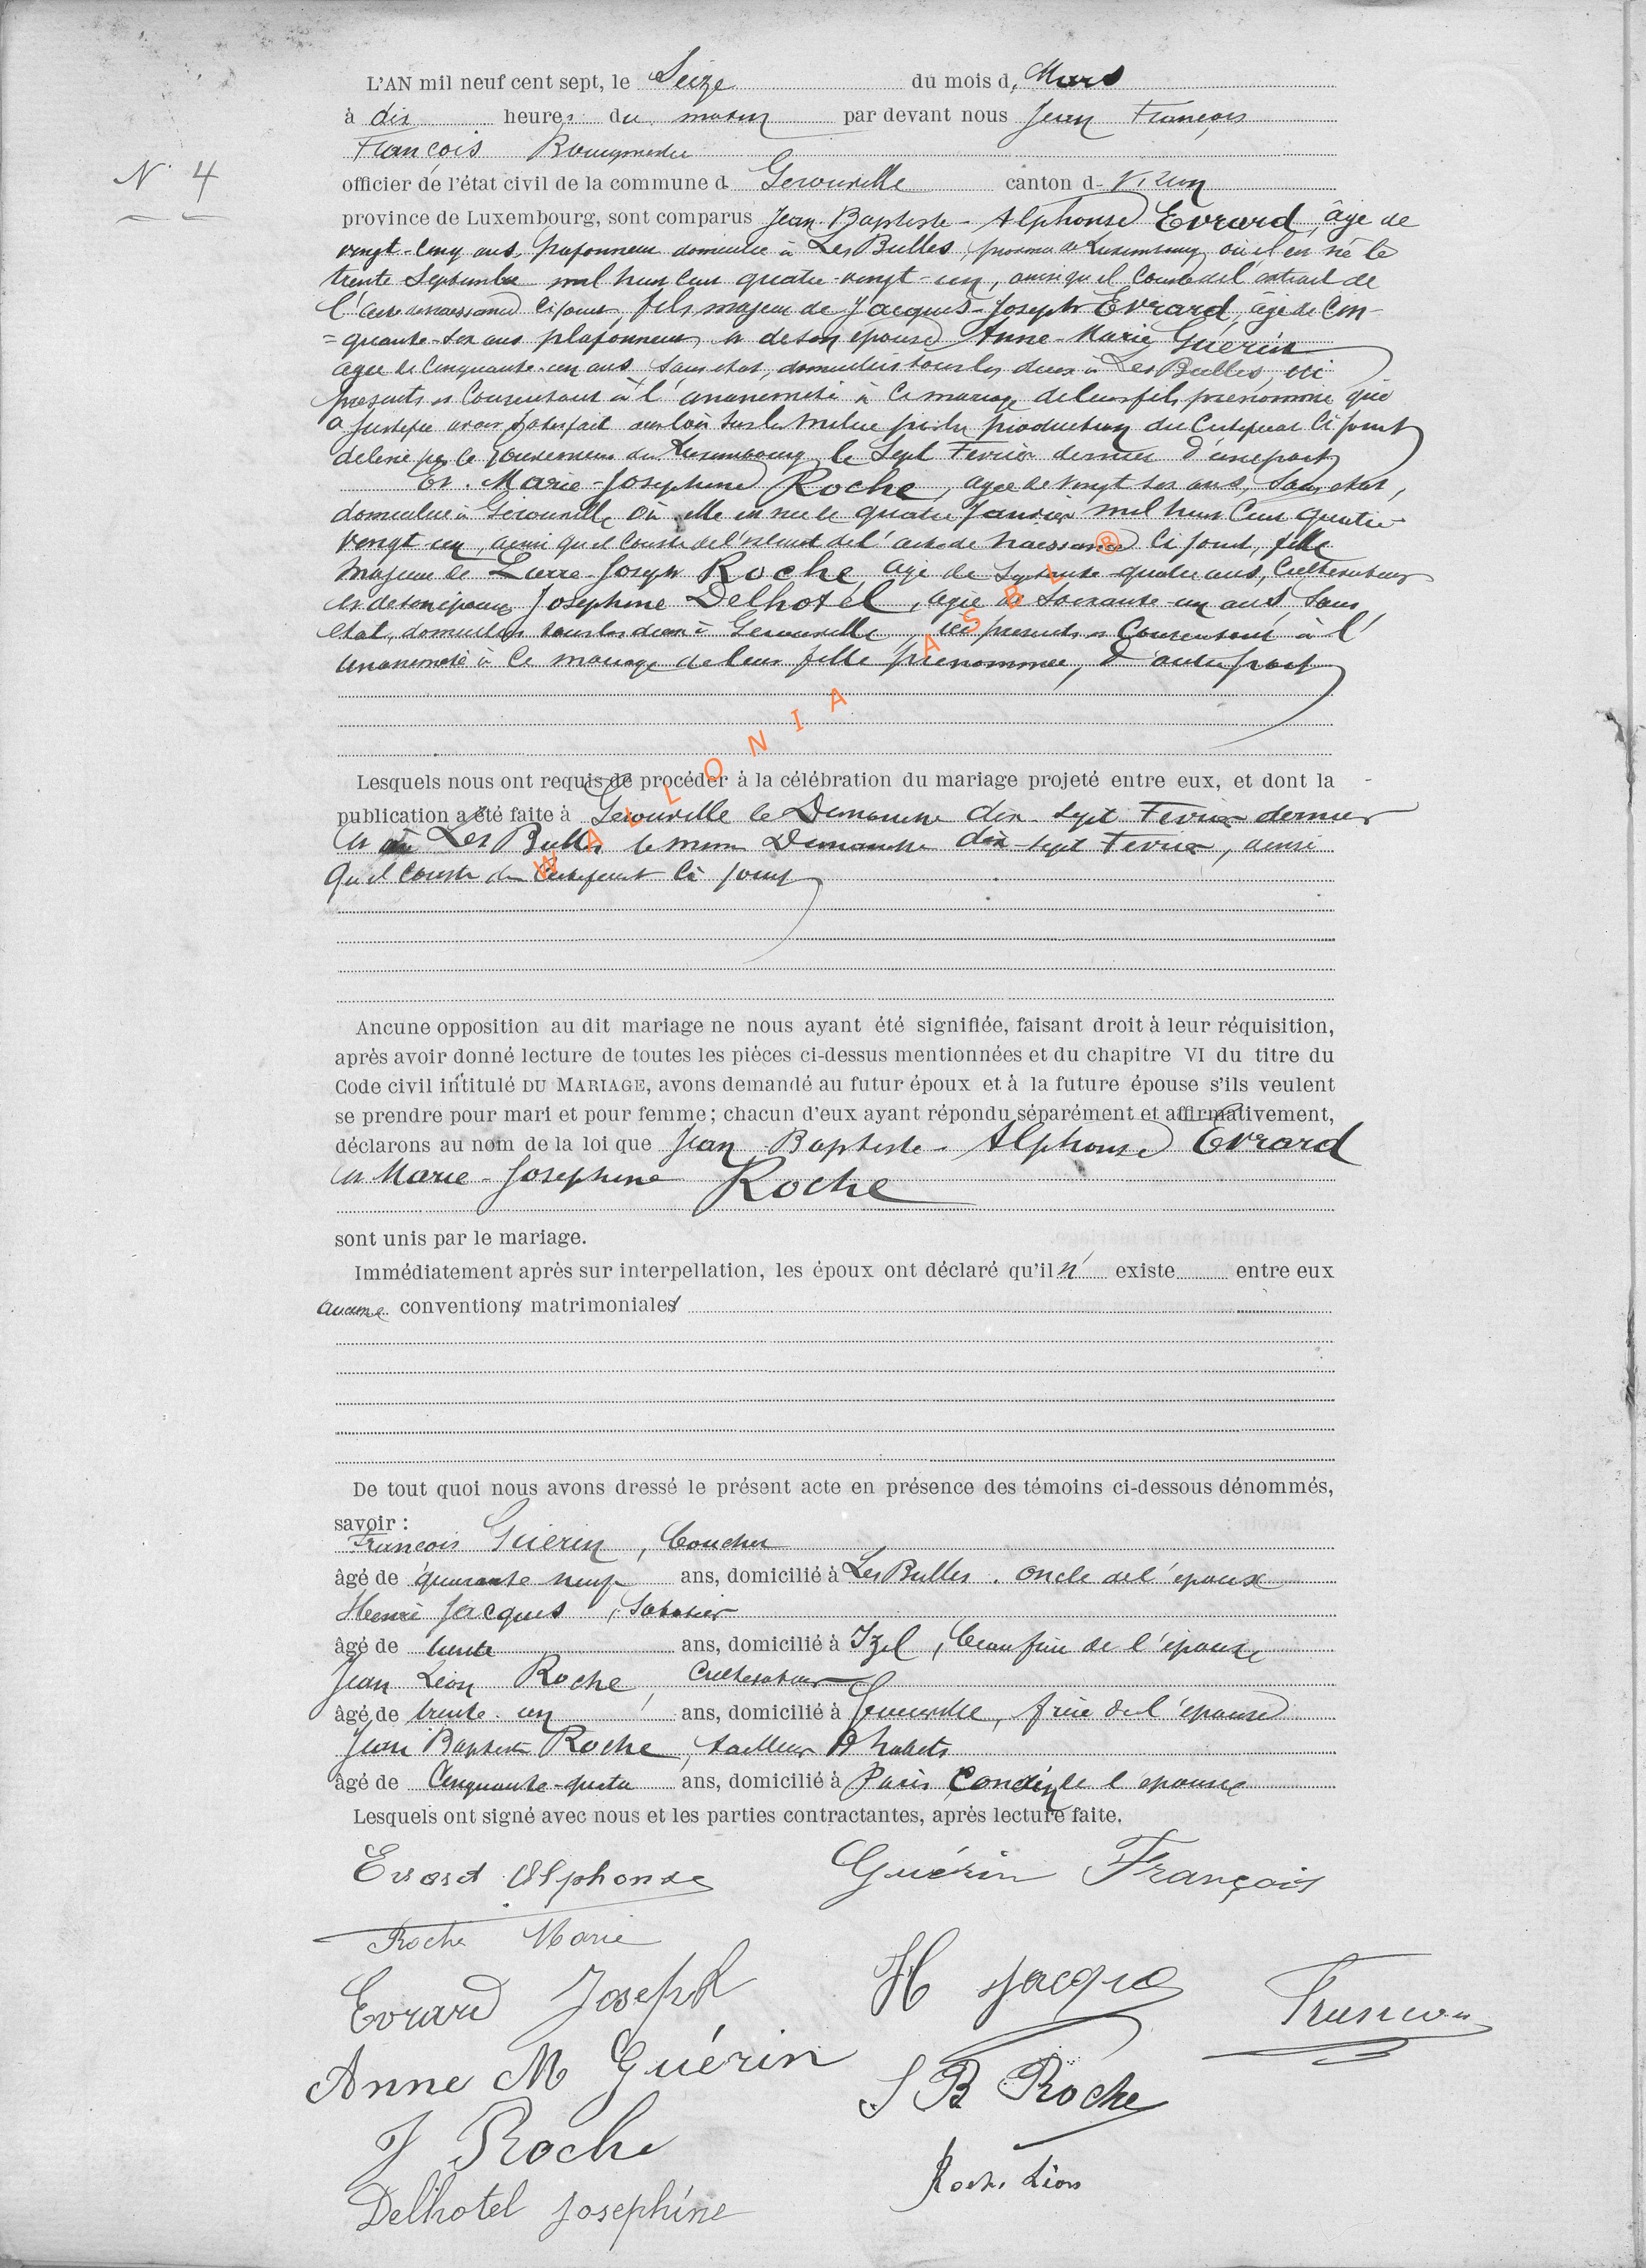 N° 4
L'AN mil neuf cent sept, le Seize du mois d. Mars
à dix heures du matin par devant nous Jean François
François Bourgmestre
officier de l'état civil de la commune d Gerouville canton d- Virton
province de Luxembourg, sont comparus Jean-Baptiste-Alphonse Evrard, âgé de
vingt-cinq ans, domicilié à Les Bulles, province de Luxembourg, où il est né le
trente Septembre mil huit cent quatre-vingt-un, ainsi qu'il conste de l'extrait de
l'acte de naissance ci joint, fils majeur de Jacques-Joseph Evrard, âgé de Cin-
=quante-six ans plafonneur, et de son épouse Anne-Marie Guérin
agée de Cinquante-un ans sans etat, domiciliés tous les deux à Les Bulles, ici
presents et consentant à l'unanimité à ce mariage de leur fils prénommé qui
a justifié avoir satisfait aux lois sur la milice par la production du Certificat Ci joint
délivré par le Gouverneur du Luxembourg, le Sept Fevrier dernier d'une part
Et. Marie-Josephine Roche, agée de vingt six ans, Sans etat,
domiciliée à Gérouville où elle est née le quatre Janvier mil huit Cent quatre
vingt un, ainsi qu'il conste de l'extrait de l'acte de naissance Ci joint, fille
majeure de Pierre-Joseph Roche agé de Soixante-quatre ans, Cultivateur
et de son épouse Josephine Delhotel, agée de Soixante un ans Sans
etat, domiciliés tous les deux à Gerouville, ici presents et Consentant à l'
unanimité à ce mariage de leur fille prénommée, d'autre part
WALLONIA ASBL ®
Lesquels nous ont requis de procéder à la célébration du mariage projeté entre eux, et dont la
publication a été faite à Gerouville le Dimanche dix-sept Fevrier dernier
et Les Bulles le même Dimanche dix-sept Fevrier, ainsi
qu'il conste du Certificat Ci joint
Aucune opposition au dit mariage ne nous ayant été signifiée, faisant droit à leur réquisition,
après avoir donné lecture de toutes les pièces ci-dessus mentionnées et du chapitre VI du titre du
Code civil intitulé DU MARIAGE, avons demandé au futur époux et à la future épouse s'ils veulent
se prendre pour mari et pour femme; chacun d'eux ayant répondu séparément et affirmativement,
déclarons au nom de la loi que Jean-Baptiste-Alphonse Evrard
et Marie-Josephine Roche
sont unis par le mariage.
Immédiatement après sur interpellation, les époux ont déclaré qu'il n' existe entre eux
aucune conventions matrimoniales
De tout quoi nous avons dressé le présent acte en présence des témoins ci-dessous dénommés,
savoir:
François Guérin,
âgé de quarante neuf ans, domicilié à Les Bulles. oncle de l'époux
Henri Jacques, Sabotier
âgé de trente ans, domicilié à Izel, beau frère de l'épouse
Jean Léon Roche, Cultivateur
âgé de trente-un ans, domicilié à Gerouville, frère de l'épouse
Jean Baptiste Roche, tailleur d'habits
âgé de Cinquante-quatre ans, domicilié à Paris, Cousin de l'épouse
Lesquels ont signé avec nous et les parties contractantes, après lecture faite.
Evrard Alphonse Guérin François
Roche Marie
Evrard Joseph H Jacques François
Anne M Guérin J B Roche
J Roche
Roche Léon
Delhotel Joséphine